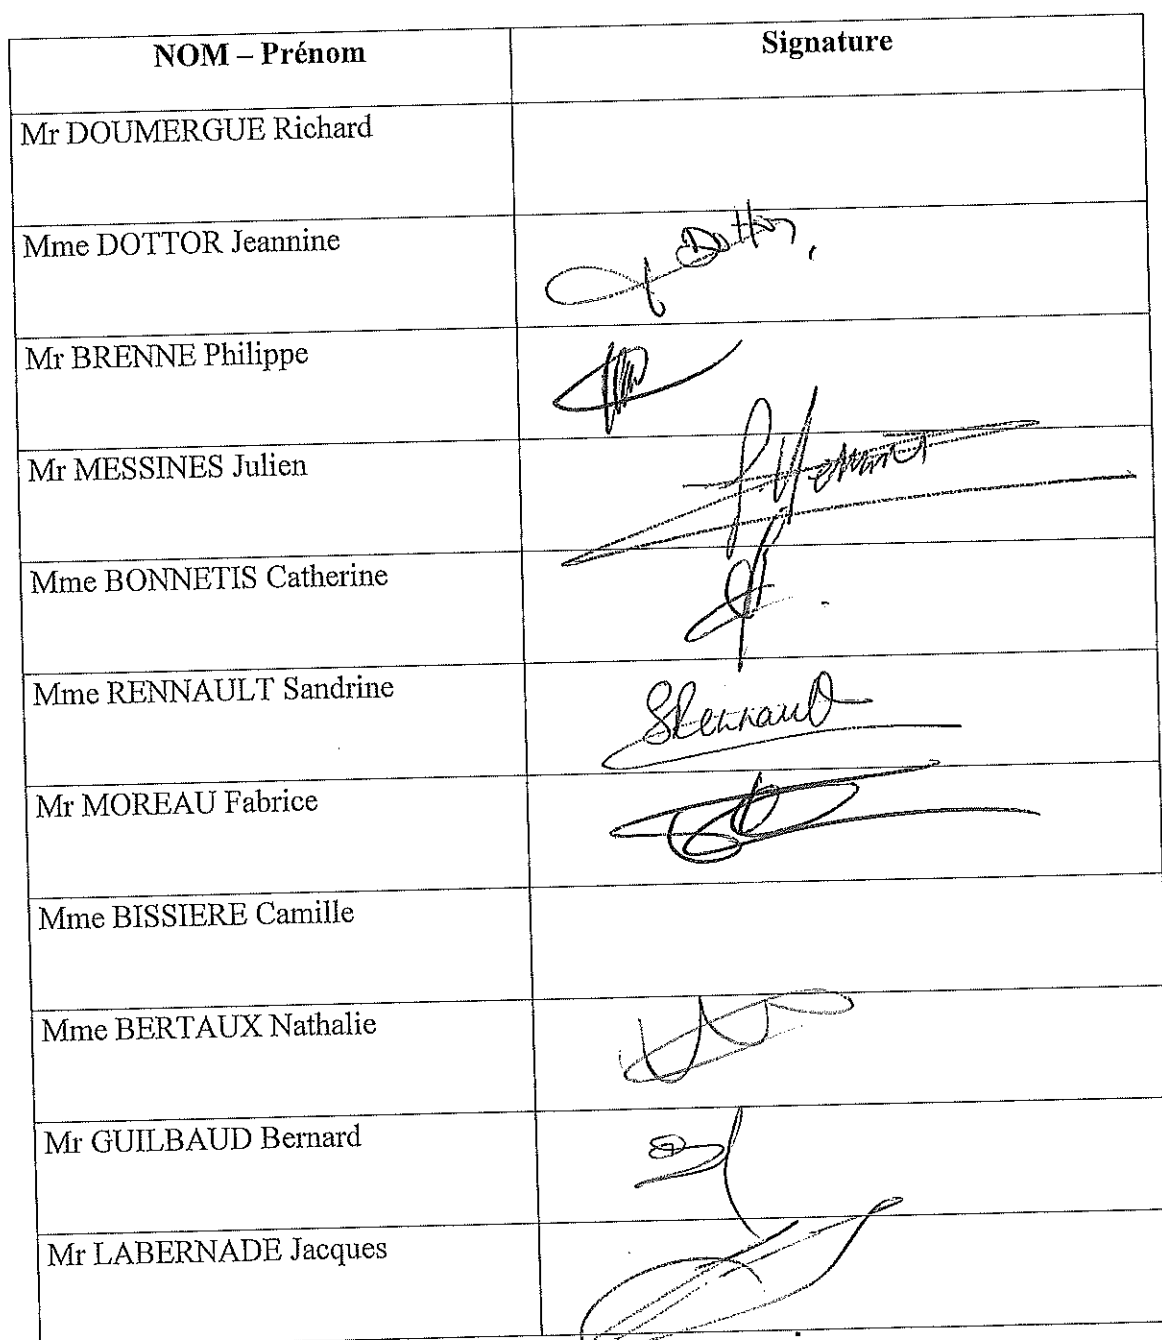 NOM – Prénom
Signature
Mr DOUMERGUE Richard
Mme DOTTOR Jeannine
Dottor
Mr BRENNE Philippe
Mr MESSINES Julien
Mme BONNETIS Catherine
Mme RENNAULT Sandrine
SRennault
Mr MOREAU Fabrice
Mme BISSIERE Camille
Mme BERTAUX Nathalie
Mr GUILBAUD Bernard
Mr LABERNADE Jacques